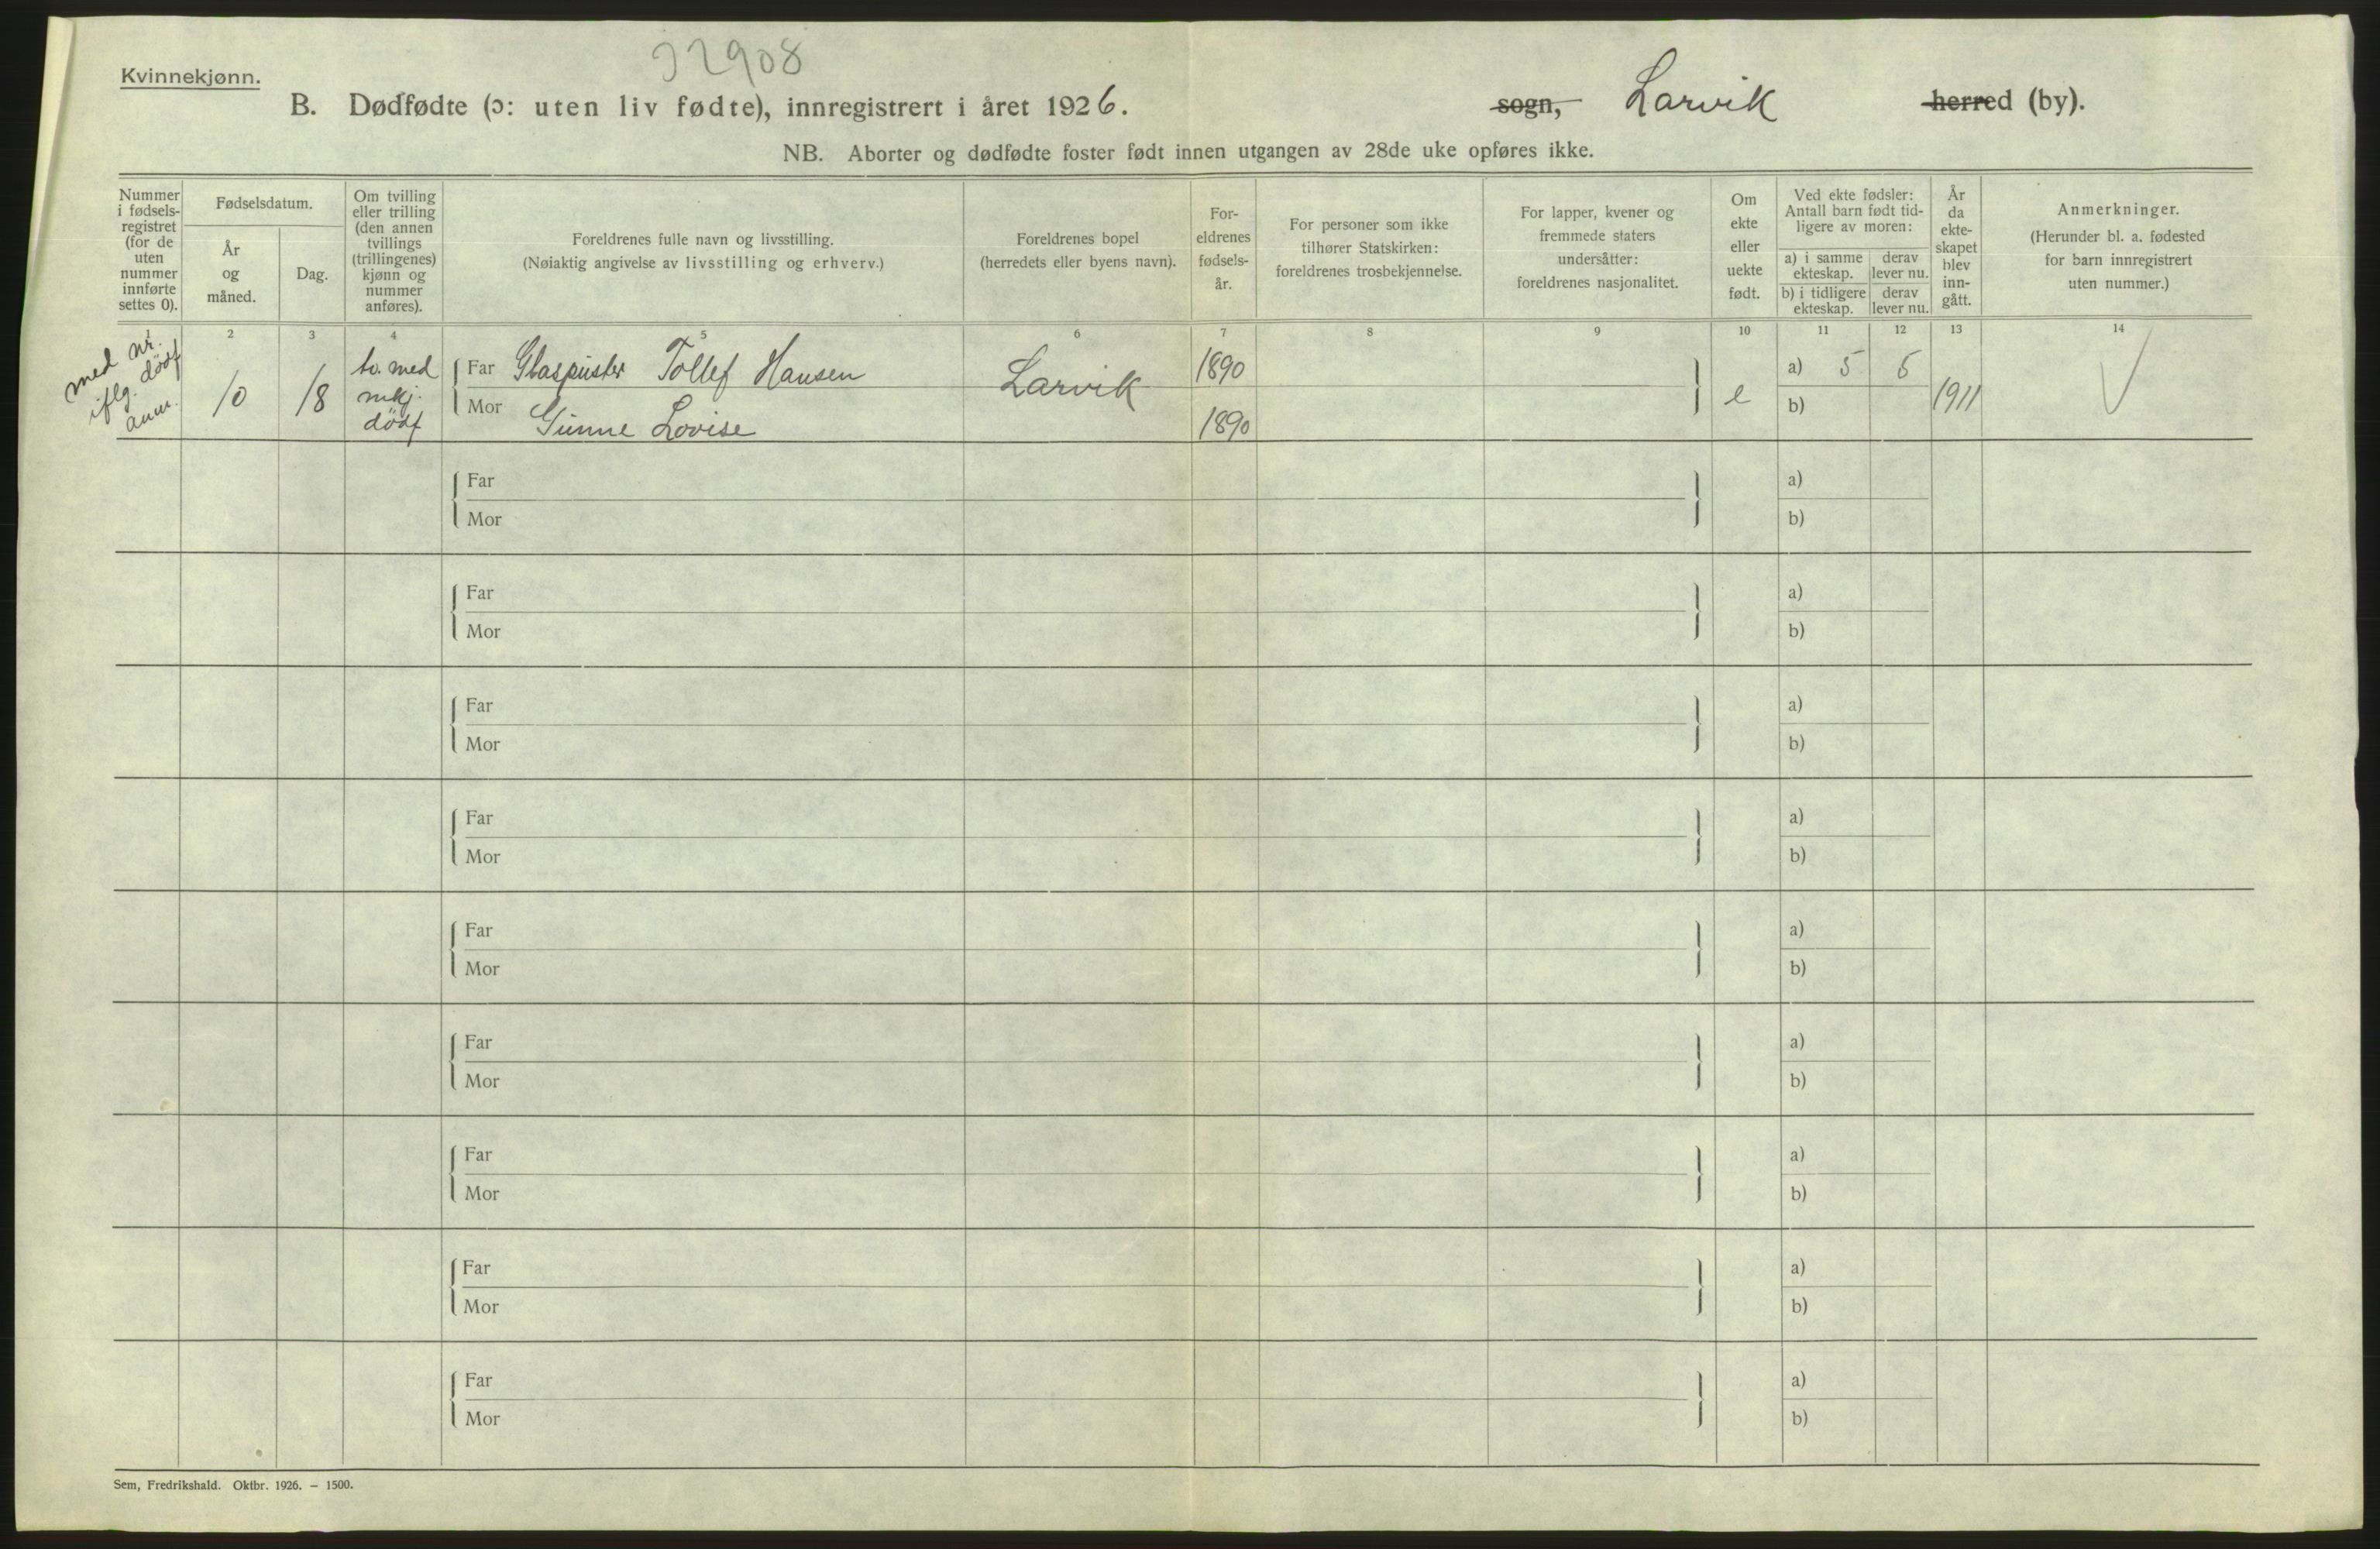 Kvinnekjønn.
92908
B. Dødfødte (ɔ: uten liv fødte), innregistrert i året 1926.
sogn, Larvik herred (by).
NB. Aborter og dødfødte foster født innen utgangen av 28de uke opføres ikke.
Nummer
i fødsels-
registret
(for de
uten
nummer
innførte
settes 0).
Fødselsdatum.
År
og
måned.
Dag.
Om tvilling
eller trilling
(den annen
tvillings
(trillingenes)
kjønn og
nummer
anføres).
Foreldrenes fulle navn og livsstilling.
(Nøiaktig angivelse av livsstilling og erhverv.)
Foreldrenes bopel
(herredets eller byens navn).
For-
eldrenes
fødsels-
år.
For personer som ikke
tilhører Statskirken:
foreldrenes trosbekjennelse.
For lapper, kvener og
fremmede staters
undersåtter:
foreldrenes nasjonalitet.
Om
ekte
eller
uekte
født.
Ved ekte fødsler:
Antall barn født tid-
ligere av moren:
a) i samme
ekteskap.
derav
lever nu.
b) i tidligere
ekteskap.
derav
lever nu.
År
da
ekte-
skapet
blev
inn-
gått.
Anmerkninger.
(Herunder bl. a. fødested
for barn innregistrert
uten nummer.)
1 2 3 4 5 6 7 8 9 10 11 12 13 14
med nr.
iflg. dödf
anm.
10
18
tv. med
mkj.
dödf
Far Glaspuster Tollef Hansen
Mor Gunne Lovise
Larvik
1890
1890
e
a) 5 5
b)
1911
Far
Mor
a)
b)
Far
Mor
a)
b)
Far
Mor
a)
b)
Far
Mor
a)
b)
Far
Mor
a)
b)
Far
Mor
a)
b)
Far
Mor
a)
b)
Far
Mor
a)
b)
Far
Mor
a)
b)
Sem, Fredrikshald. Oktbr. 1926. — 1500.